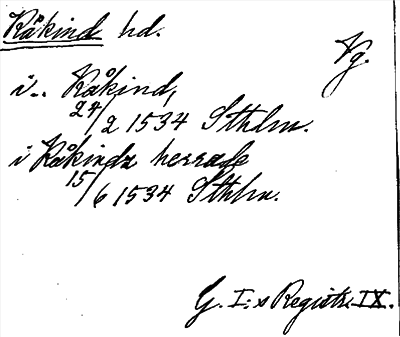 Kåkind hd.
Vg.
i.. Kåkind,
24/2 1534 Sthlm.
i Kåkinda herrade
15/6 1534 Sthlm.
G. I:s Registr. IX.